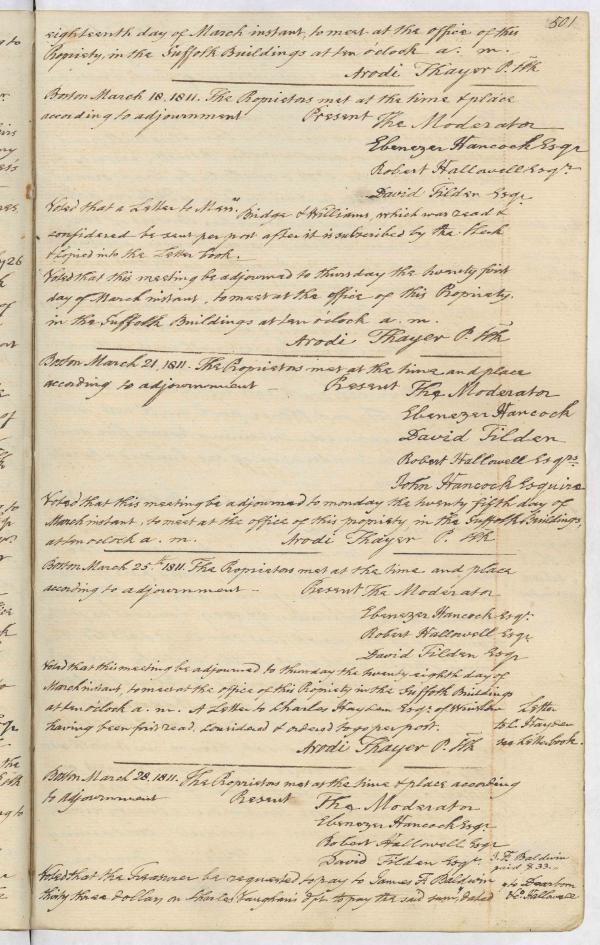 501
eighteenth day of March instant, to meet at the office of this
Propriety, in the Suffolk Buildings at ten o'clock a. m.
Arodi Thayer P. Clk
Boston March 18, 1811. The Proprietors met at the time & place
according to adjournment Present The Moderator
Ebenezer Hancock Esqr
Robert Hallowell Esqr.
David Tilden Esqr.
Voted that a Letter to Messrs. Bridge & Williams, which was read &
considered be sent per post after it is subscribed by the Clerk
& copied into the Letter book.
Voted that this meeting be adjourned to thursday the twenty first
day of March instant, to meet at the office of this Propriety,
in the Suffolk Buildings at ten o'clock a. m.
Arodi Thayer P. Clk
Boston March 21, 1811. The Proprietors met at the time and place
according to adjournment – Present The Moderator
Ebenezer Hancock
David Tilden
Robert Hallowell Esqrs
John Hancock Esquire
Voted that this meeting be adjourned to monday the twenty fifth day of
March instant, to meet at the office of this propriety, in the Suffolk Buildings,
at ten oclock a. m. Arodi Thayer P. Clk
Boston March 25th. 1811. The Proprietors met at the time and place
according to adjournment – Present The Moderator
Ebenezer Hancock Esqr.
Robert Hallowell Esqr
David Tilden Esqr
Voted that this meeting be adjourned to thursday the twenty eighth day of
March instant, to meet at the office of this Propriety in the Suffolk Buildings
at ten o'clock a. m. A Letter to Charles Hayden Esqr. of Winslow Letter
having been first read, considered & ordered to go per post. to C. Hayden
see Letterbook.
Arodi Thayer P. Clk
Boston March 28, 1811. The Proprietors met at the time & place according
to adjournment Present The Moderator
Ebenezer Hancock Esqr.
Robert Hallowell Esqr
David Tilden Esqr.
J. F. Baldwin
paid $33.
Voted that the Treasurer be requested to pay to James F. Baldwin
thirty three dollars on Charles Vaughan's to pay the said sum, dated
Dearborn
Hallowell